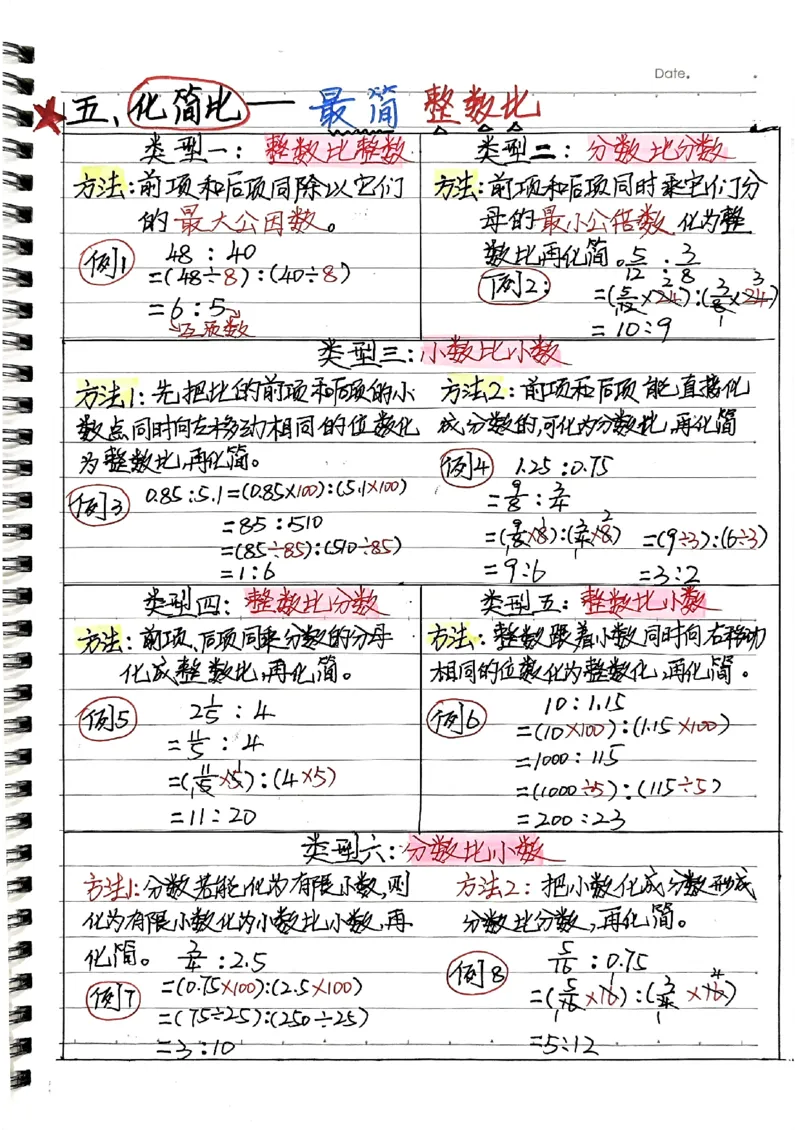 Date.
五、化简比一 最简 整数比
类型一：整数比整数
方法：前项和后项同除以它们
的最大公因数。
例1
48：40
=(48÷8)：(40÷8)
=6：5
互质数
类型二：分数比分数
方法：前项和后项同时乘它们分
母的最小公倍数，化为整
数比再化简。
例2：
5/12：3/8
=(5/12×24)：(3/8×24)
2 3
1 1
=10：9
类型三：小数比小数
方法1：先把比的前项和后项的小
数点同时向右移动相同的位数化
为整数比，再化简。
例3
0.85：5.1=(0.85×100)：(5.1×100)
=85：510
=(85÷85)：(510÷85)
=1：6
方法2：前项和后项能直接化
成分数的，可化为分数比，再化简
例4
1.25：0.75
=9/8：3/4
=(9/8×8)：(3/4×8)
1 2
1 1
=9：6
=(9÷3)：(6÷3)
=3：2
类型四：整数比分数
方法：前项、后项同乘分数的分母
化成整数比，再化简。
例5
2 1/5：4
=11/5：4
=(11/5×5)：(4×5)
1
1
=11：20
类型五：整数比小数
方法：整数跟着小数同时向右移动
相同的位数化为整数化，再化简。
例6
10：1.15
=(10×100)：(1.15×100)
=1000：115
=(1000÷5)：(115÷5)
=200：23
类型六：分数比小数
方法1：分数若能化为有限小数，则
化为有限小数化为小数比小数，再
化简。
例7
3/4：2.5
=(0.75×100)：(2.5×100)
=(75÷25)：(250÷25)
=3：10
方法2：把小数化成分数形成
分数比分数，再化简。
例8
5/16：0.75
=(5/16×16)：(3/4×16)
1 4
1 1
=5：12